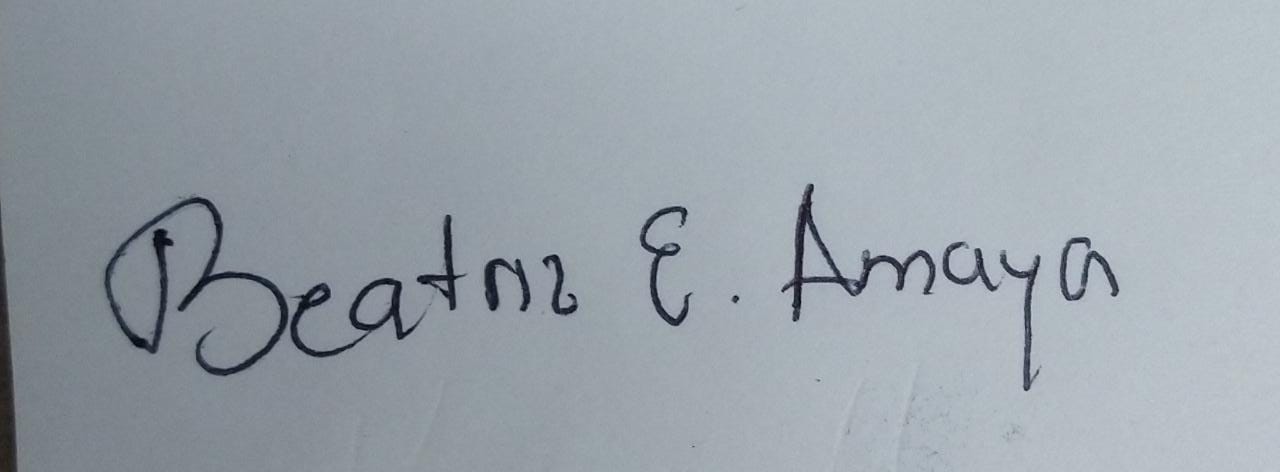 Beatriz E. Amaya